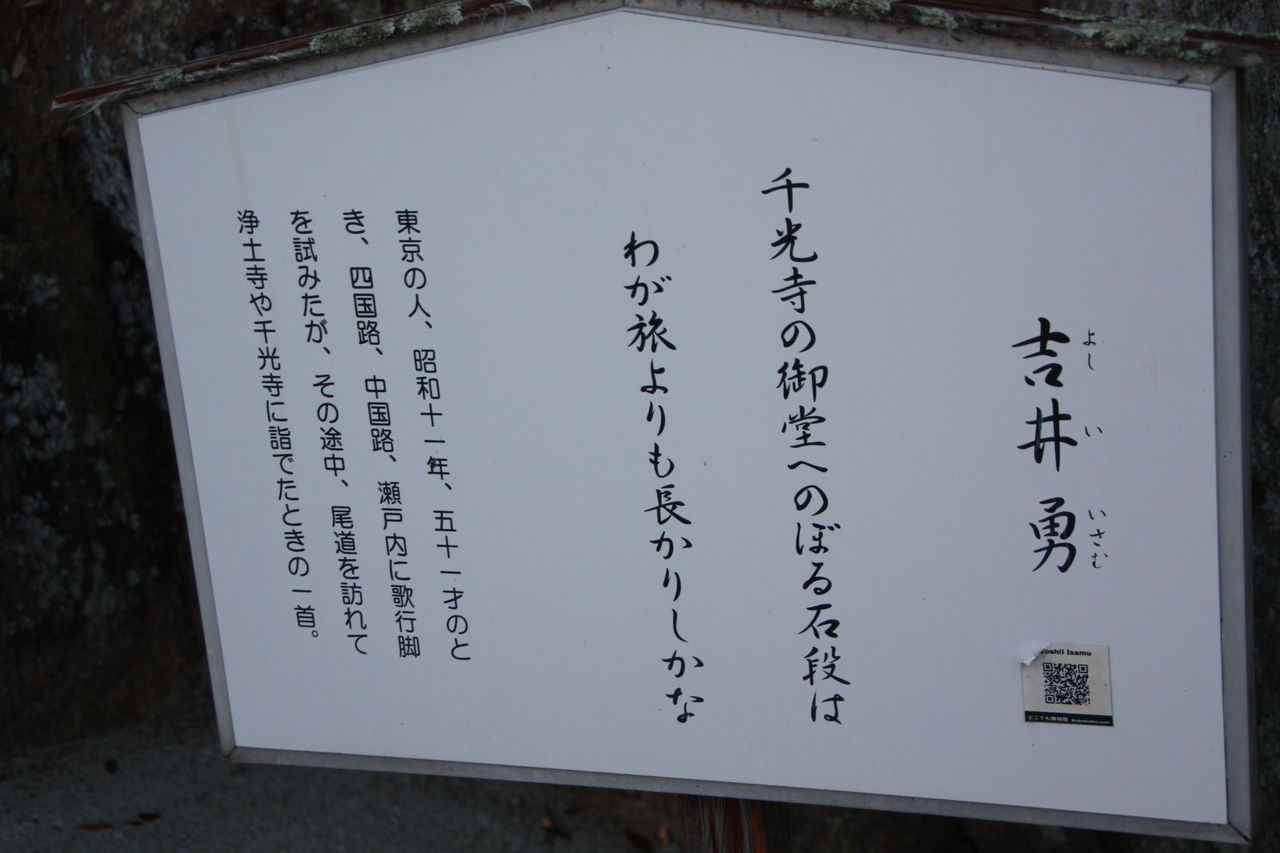 吉井勇
よしいいさむ
千光寺の御堂へのぼる石段は
わが旅よりも長かりしかな
東京の人、昭和十一年、五十一才のと
き、四国路、中国路、瀬戸内に歌行脚
を試みたが、その途中、尾道を訪れて
浄土寺や千光寺に詣でたときの一首。
Yoshii Isamu
どこでも博物館